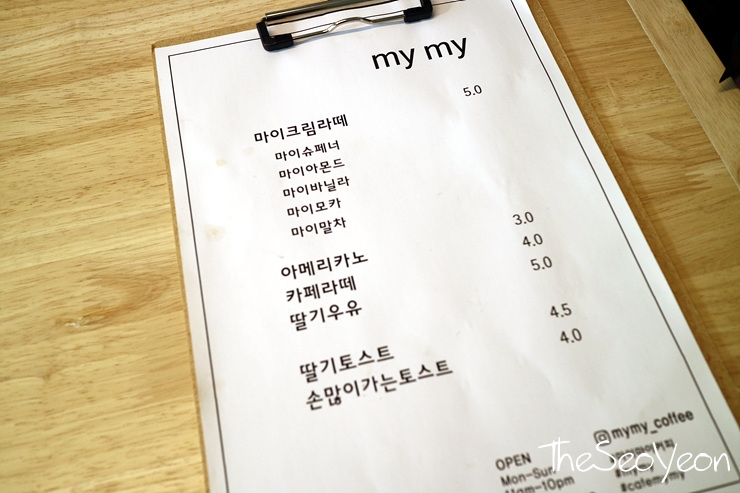 my my
마이크림라떼 5.0
마이슈페너
마이아몬드
마이바닐라
마이모카
마이말차
아메리카노 3.0
카페라떼 4.0
딸기우유 5.0
딸기토스트 4.5
손많이가는토스트 4.0
mymy_coffee
OPEN
Mon-Sun
11am-10pm
TheSeoYeon